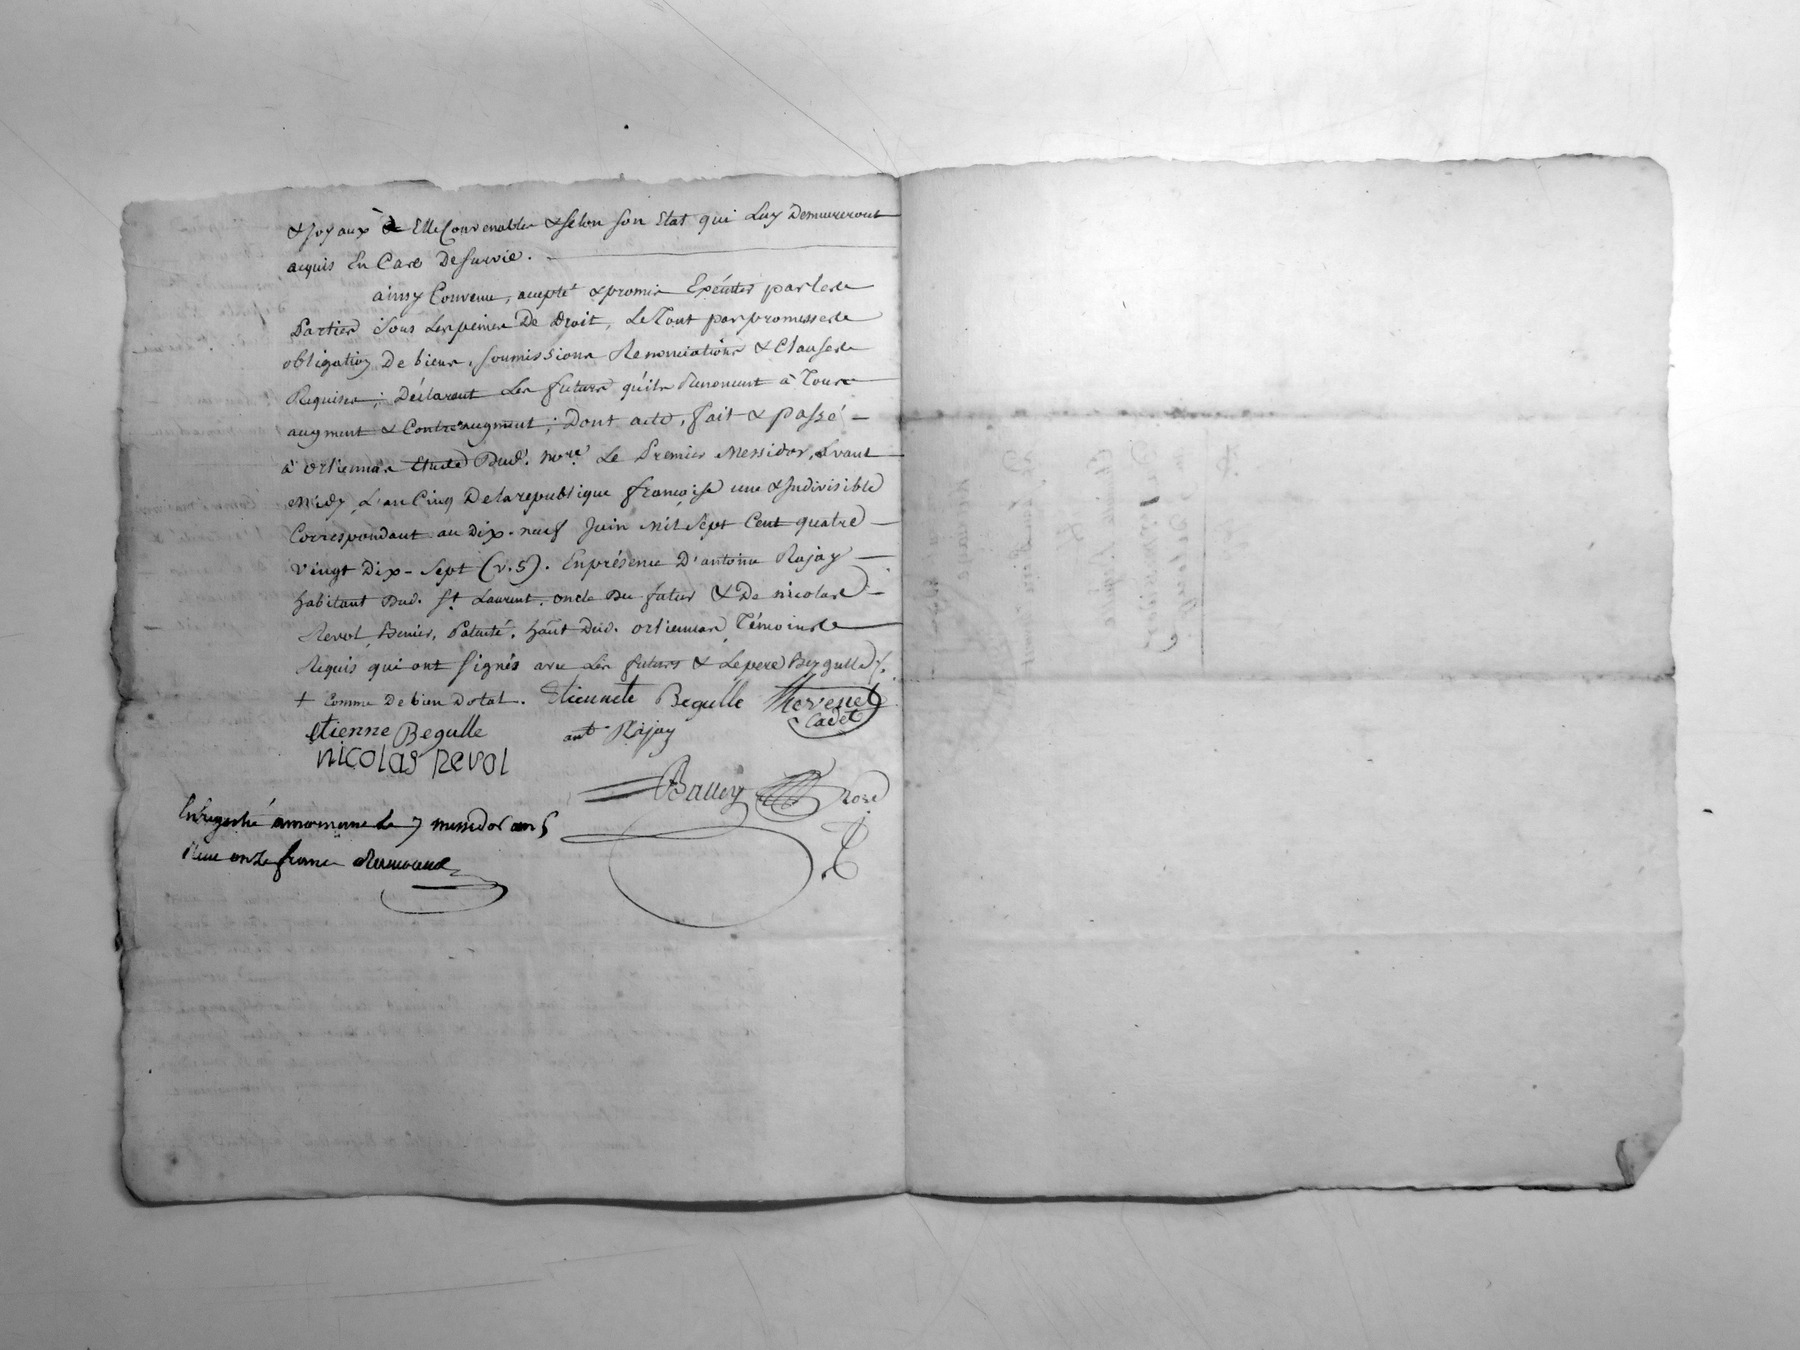 & Joyaux à Elle Convenables & selon son Etat qui Luy Demeureront
acquis En Cas De survie.
ainsy Convenu, accepté & promis Exécuter par les
Parties sous les peines De Droit, Le Tout par promesses
obligation De biens, soumissions Renonciations & Clauses
Requises; Déclarant Les futurs qu'ils Renoncent à Tous
augment & Contre augment; Dont acte, fait & passé
à Orliennas Etude Dud. Nore. Le Premier Messidor, avant
midy, L'an Cinq De la republique françoise une & Indivisible
Correspondant au Dix-neuf Juin Mil Sept Cent quatre
vingt Dix-Sept (v.S). En présence D'antoine Rajay
habitant Dud. St. Laurent, oncle Du futur & De nicolas
Revol, Patenté, habt Dud. Orliennas, Témoins
Requis qui ont signés avec Les futurs & Le pere Begulle
+ Comme De bien Dotal. Etiennete Begulle Thevenet
Cadet
Etienne Begulle ant Rajay
nicolas Revol
Balley Rose
Enregistré a mornant le 7 messidor an 5
Reçu onze francs